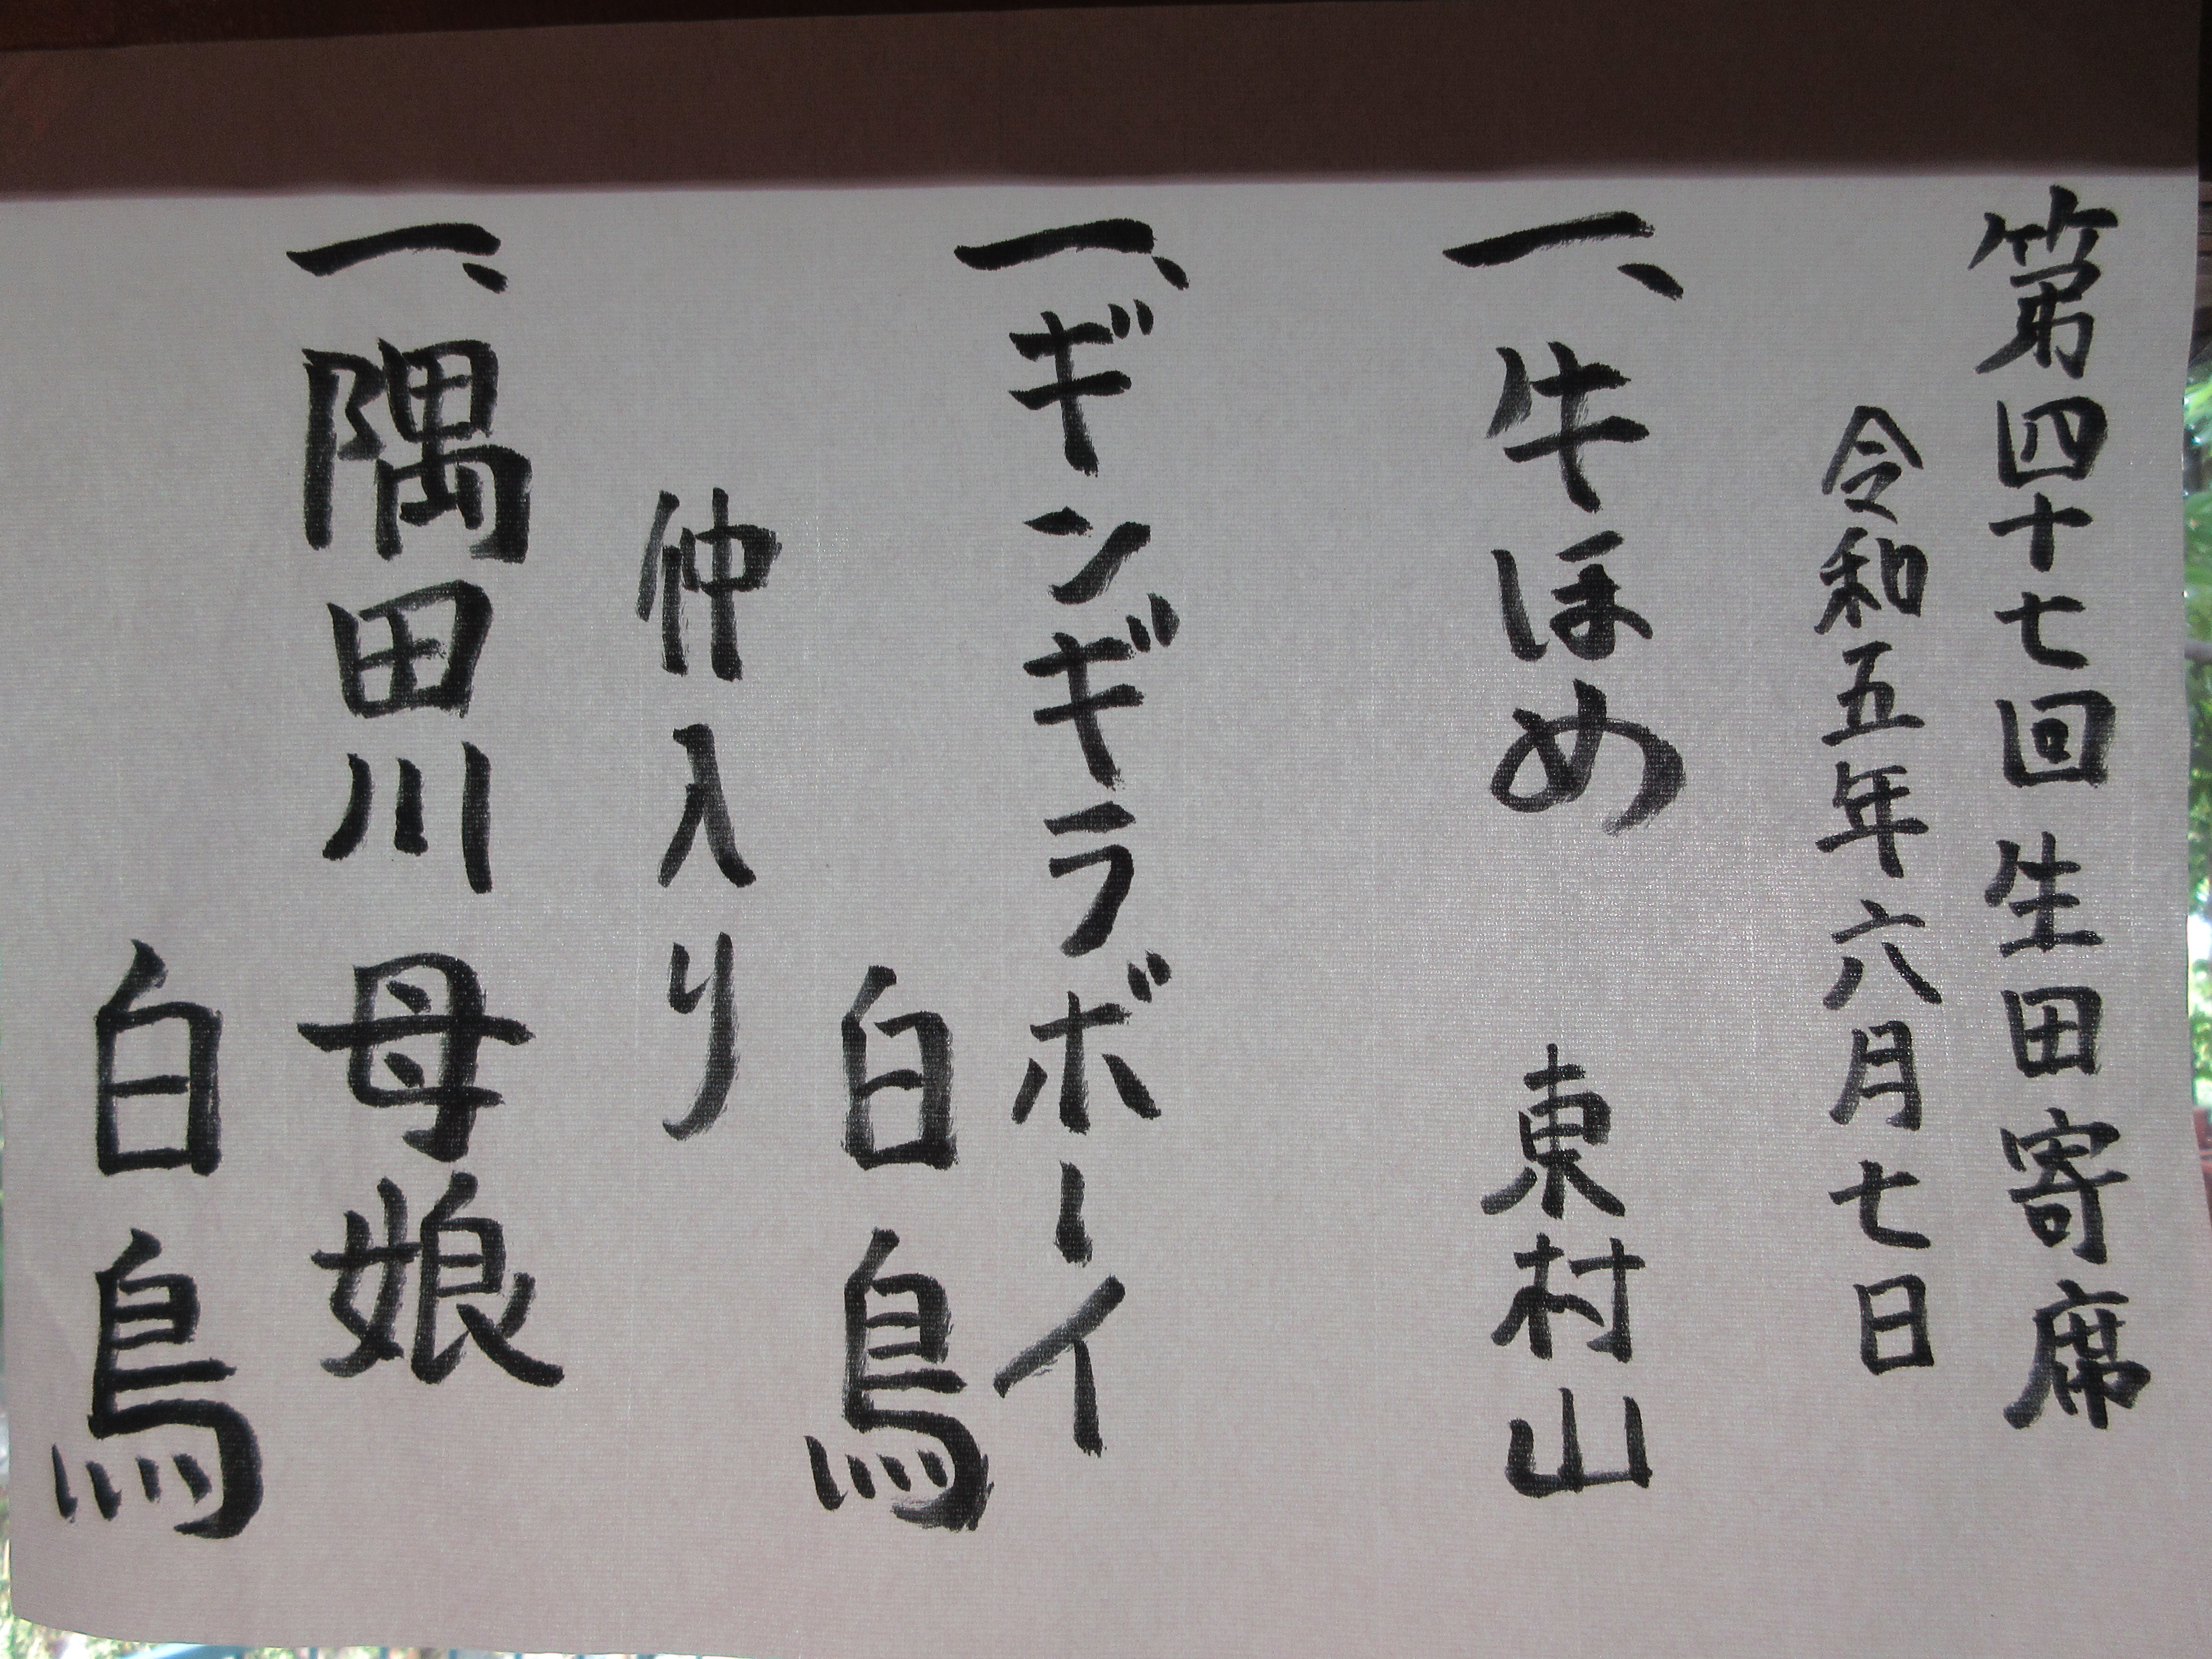 第四十七回 生田寄席
令和五年六月七日
一、牛ほめ 東村山
一、ギンギラボーイ
白鳥
仲入り
一、隅田川母娘
白鳥